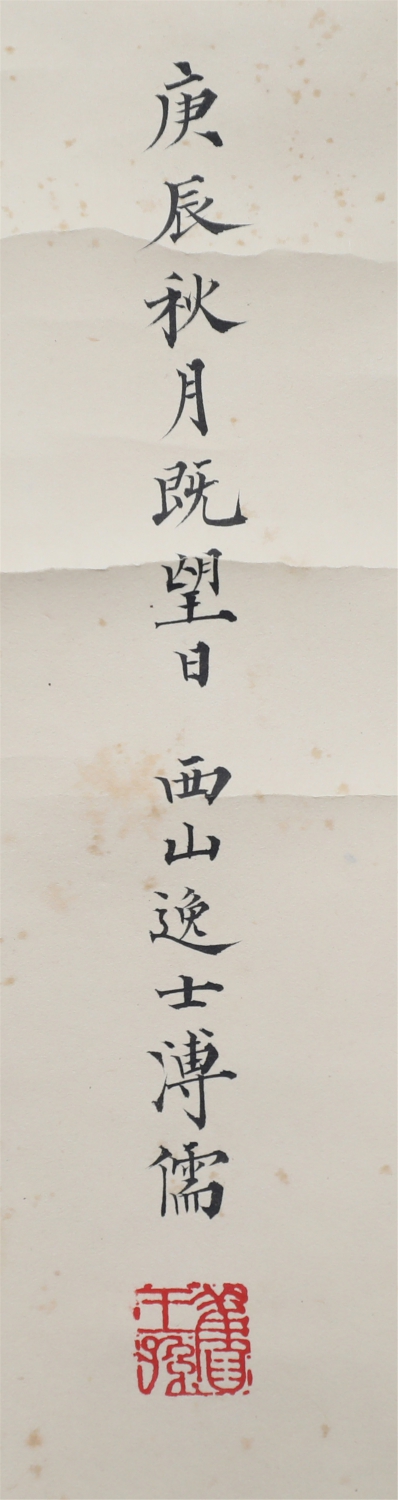 庚辰秋月既望日 西山逸士溥儒
舊王孫